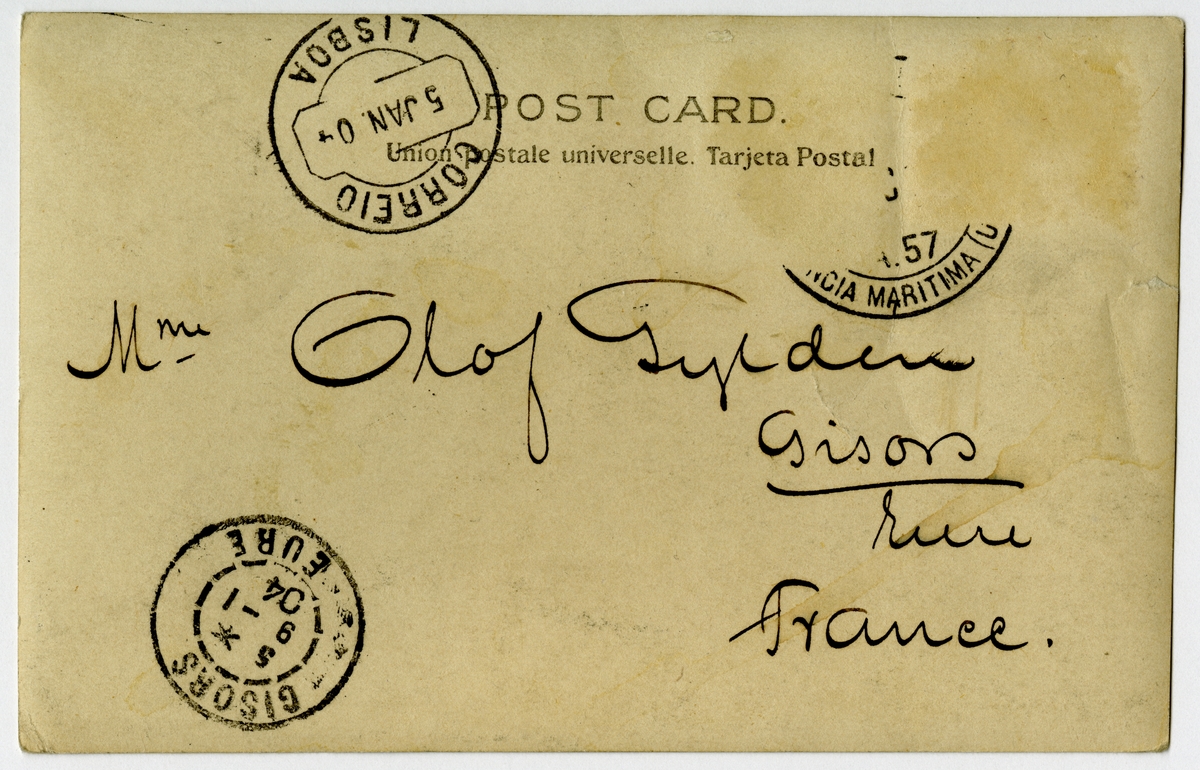 LISBOA
5 JAN. 04
CORREIO
POST CARD.
Union postale universelle. Tarjeta Postal
.57
NCIA MARITIMA (
Mme Olof Gylden
Gisors
Eure
France.
EURE
04
GISORS